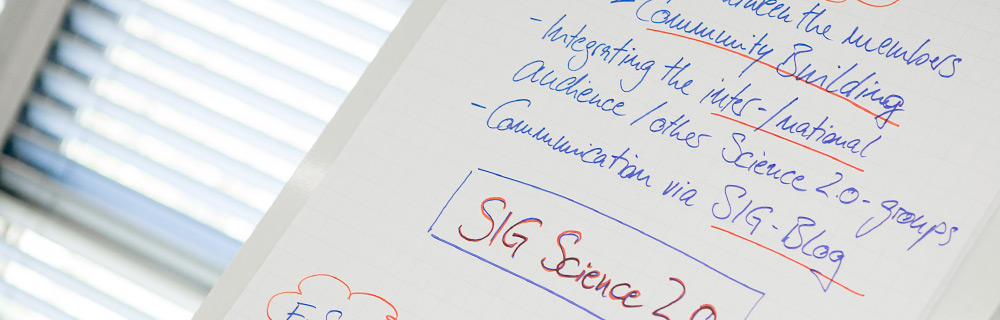 between the members
Community Building
- Integrating the inter-/national
audience / other Science 2.0-groups
- Communication via SIG-Blog
SIG Science 2.0